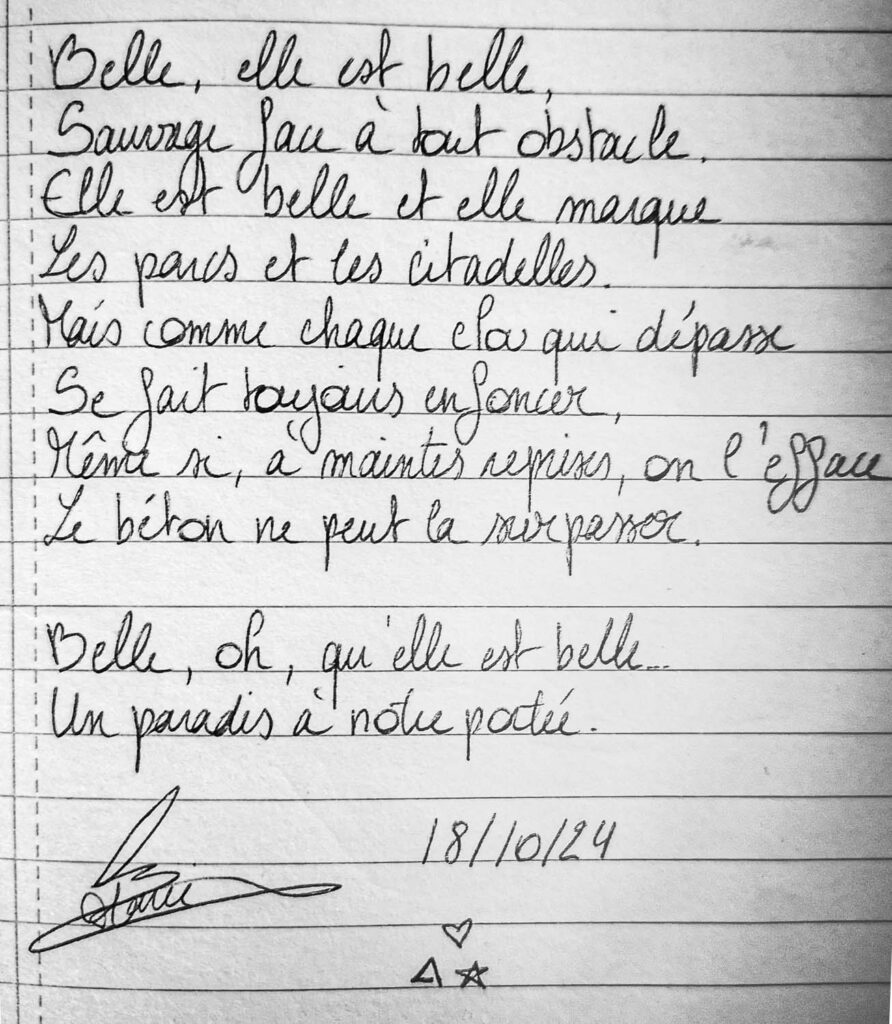 Belle, elle est belle,
Sauvage face à tout obstacle.
Elle est belle et elle marque
Les parcs et les citadelles.
Mais comme chaque clou qui dépasse
Se fait toujours enfoncer,
Même si, à maintes reprises, on l'efface
Le béton ne peut la surpasser.
Belle, oh, qu'elle est belle...
Un paradis à notre portée.
18/10/24